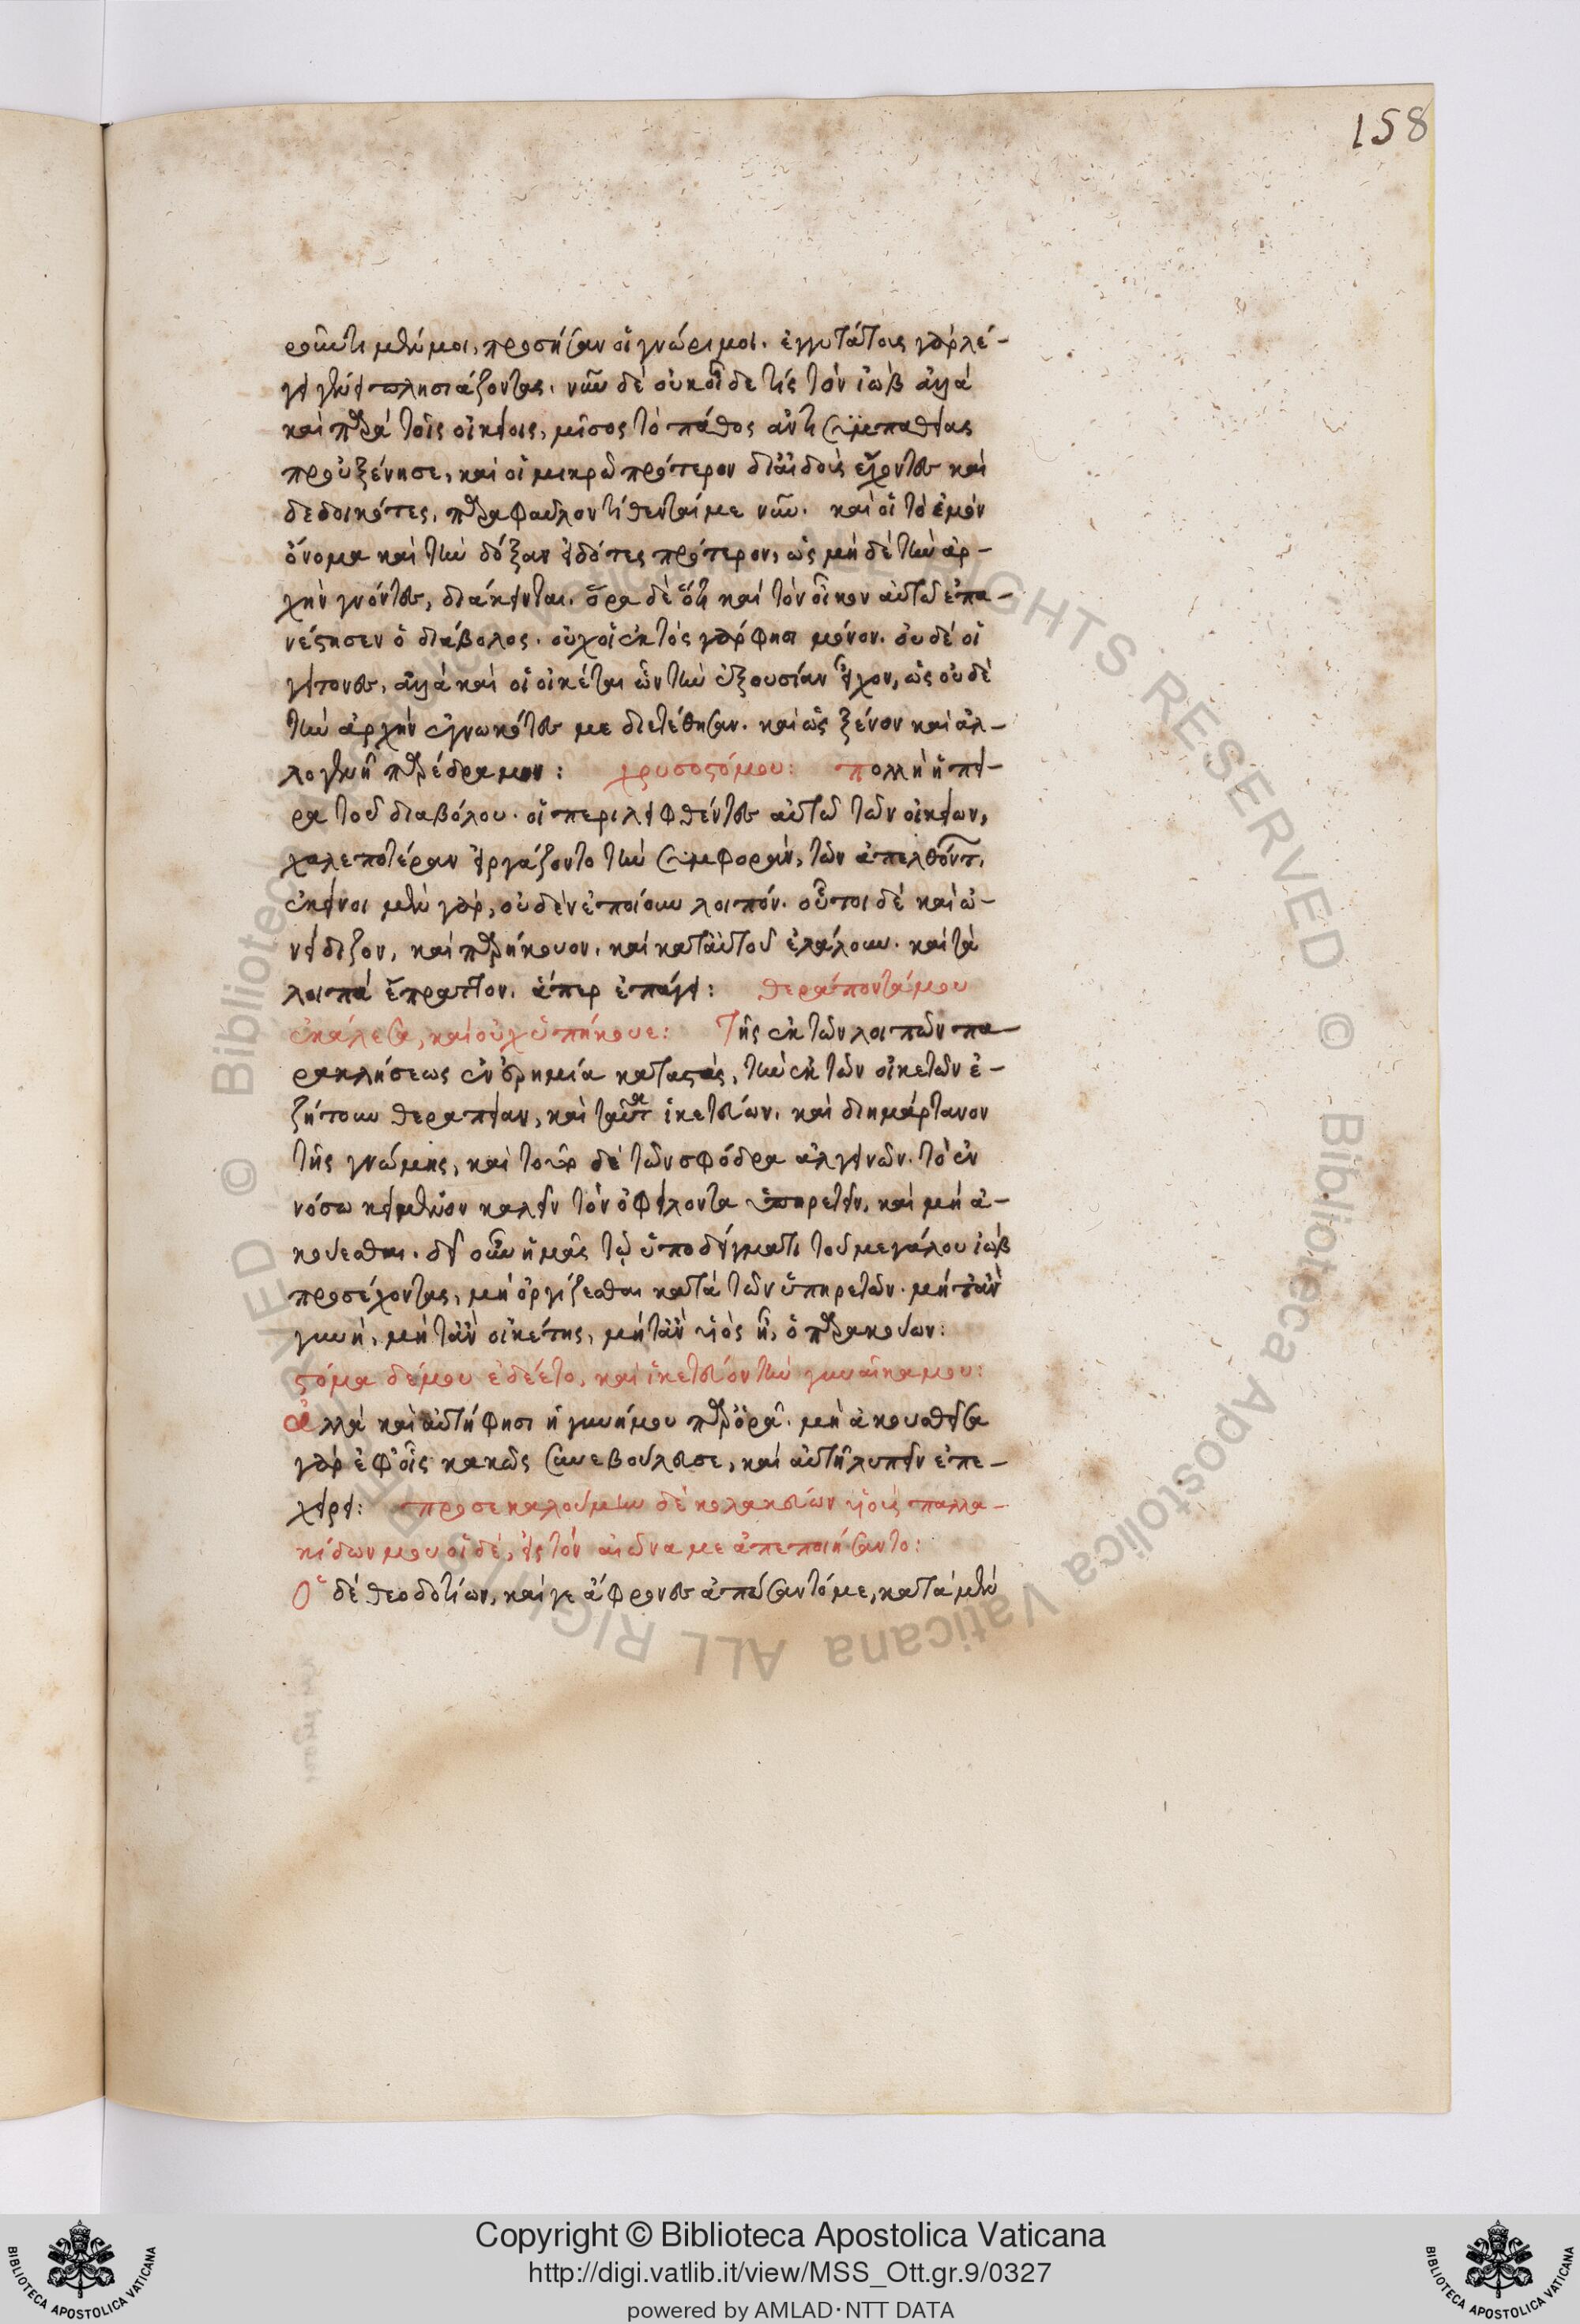 158
ροῦντι μὲν μοι, προσήεσαν οἱ γνώριμοι. ἐγγυτάτους γὰρ λέ-
γει τοὺς πλησιάζοντας. νῦν δὲ οὐκ οἶδε τίς τὸν ἰὼβ ἀλλὰ
καὶ παρὰ τοῖς οἰκείοις, μῖσος τὸ πάθος ἀντὶ συμπαθείας
προὐξένησε, καὶ οἱ μικρῶ πρότερον δι' αἰδοῦς ἔχοντες καὶ
δεδοικότες, παρὰ φαῦλον τίθενταί με νῦν. καὶ οἱ τὸ ἐμὸν
ὄνομα καὶ τὴν δόξαν εἰδότες πρότερον, ὡς μὴ δὲ τὴν ἀρ-
χὴν γνόντες, διάκεινται. ὅρα δὲ ὅτι καὶ τὸν οἶκον αὐτῶ ἐπα-
νέστησεν ὁ διάβολος. οὐχ οἱ ἐκτός γάρ φησι μόνον. οὐδὲ οἱ
γείτονες, ἀλλὰ καὶ οἱ οἰκέται ὧν τὴν ἐξουσίαν εἶχον, ὡς οὐδὲ
τὴν ἀρχὴν ἐγνωκότες με διετέθησαν. καὶ ὡς ξένον καὶ ἀλ-
λογενῆ παρέδραμον: χρυσοστόμου: πολλὴ ἡ πεῖ-
ρα τοῦ διαβόλου. οἱ περιλειφθέντες αὐτῶ τῶν οἰκείων,
χαλεποτέραν εἰργάζοντο τὴν συμφοράν, τῶν ἀπελθόντ.
ἐκεῖνοι μὲν γὰρ, οὐδὲν ἐποίουν λοιπόν. οὗτοι δὲ καὶ ὠ-
νείδιζον, καὶ παρήκουον, καὶ κατ' αὐτοῦ ἐλάλουν. καὶ τὰ
λοιπὰ ἔπραττον. ἅπερ ἐπάγει: θεράποντά μου
ἐκάλεσα, καὶ οὐχ ὑπήκουε: Τῆς ἐκ τῶν λοιπῶν πα-
ρακλήσεως ἐν ἐρημία καταστὰς, τὴν ἐκ τῶν οἰκετῶν ἐ-
ζήτουν θεραπείαν, καὶ ταῦτα ἱκετεύων. καὶ διημάρτανον
τῆς γνώμης, καὶ τοῦτο δὲ τῶν σφόδρα ἀλγεινῶν. τὸ ἐν
νόσω κείμενον καλεῖν τὸν ὀφείλοντα ὑπηρετεῖν, καὶ μὴ ἀ-
κούεσθαι. δεῖ οὖν ἡμᾶς τῷ ὑποδείγματι τοῦ μεγάλου ἰὼβ
προσέχοντας, μὴ ὀργίζεσθαι κατὰ τῶν ὑπηρετῶν. μήτ' ἂν
γυνὴ, μήτ' ἂν οἰκέτης, μήτ' ἂν υἱὸς ᾖ, ὁ παρακούων:
στόμα δέ μου ἐδέετο, καὶ ἱκετεύον τὴν γυναῖκα μου:
ἀλλὰ καὶ αὐτή φησι ἡ γυνή μου παρορᾶ. μὴ ἀκουσθεῖσα
γὰρ ἐφ' οἷς κακῶς συνεβούλευσε, καὶ αὐτὴ λυπεῖν ἐπε-
χείρει: προσεκαλούμην δὲ κολακεύων υἱοὺς παλλα-
κίδων μου οἱ δὲ, εἰς τὸν αἰῶνα με ἀπεποιήσαντο:
Ὁ δὲ θεοδοτίων, καί γε ἄφρονες ἀπώσαντό με, κατὰ μὲν
© Biblioteca Apostolica Vaticana ALL RIGHTS RESERVED
Copyright © Biblioteca Apostolica Vaticana
http://digi.vatlib.it/view/MSS_Ott.gr.9/0327
powered by AMLAD·NTT DATA
BIBLIOTECA APOSTOLICA VATICANA
BIBLIOTECA APOSTOLICA VATICANA